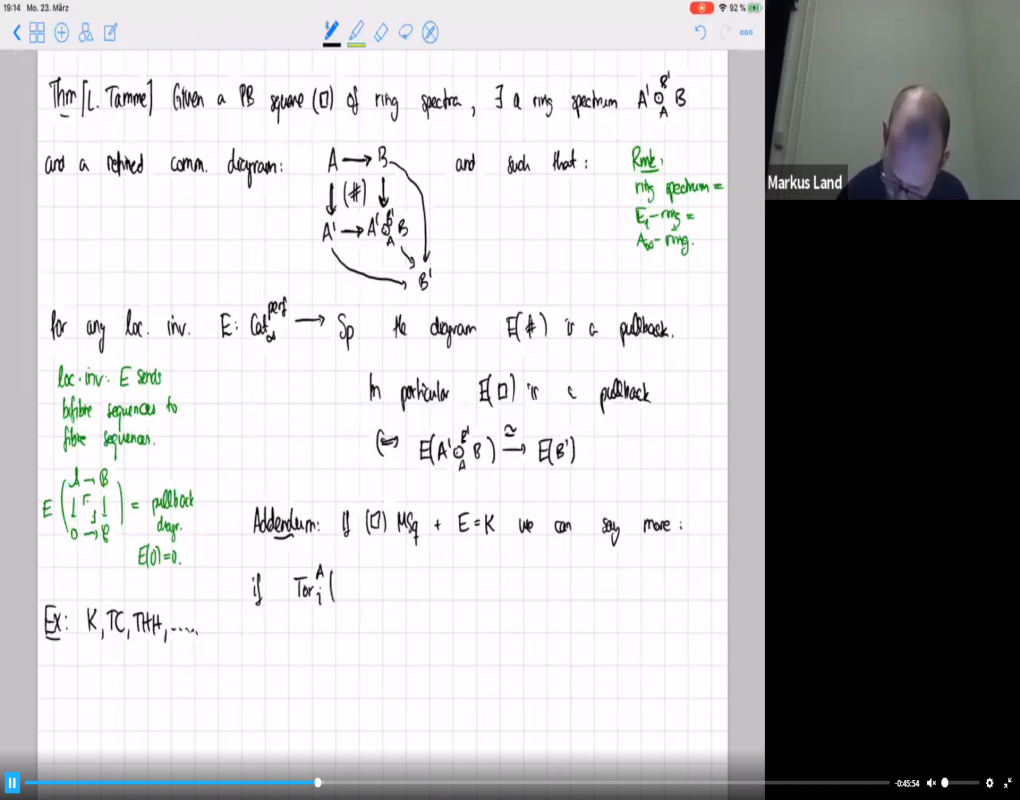 19:14 Mo. 23. März
92 %
Thm [L. Tamme] Given a PB square (□) of ring spectra, ∃ a ring spectrum A' ⊙_A^{B'} B
and a refined comm. diagram:
A → B
↓ (#) ↓
A' → A' ⊙_A^{B'} B
B'
and such that:
Rmk.
ring spectrum =
E₁-ring =
A∞-ring.
for any loc. inv. E: Cat_∞^{perf} → Sp the diagram E(#) is a pullback.
loc. inv: E sends
bifibre sequences to
fibre sequences.
In particular E(□) is a pullback
⇔ E(A' ⊙_A^{B'} B) →≅ E(B')
E ( A → B
↓ ↓
0 → C ) = pullback
diagr.
E(0)=0.
Addendum: if (□) MSq + E = K we can say more:
if Tor_i^A (
Ex: K, TC, THH, .....
Markus Land
-0:45:54